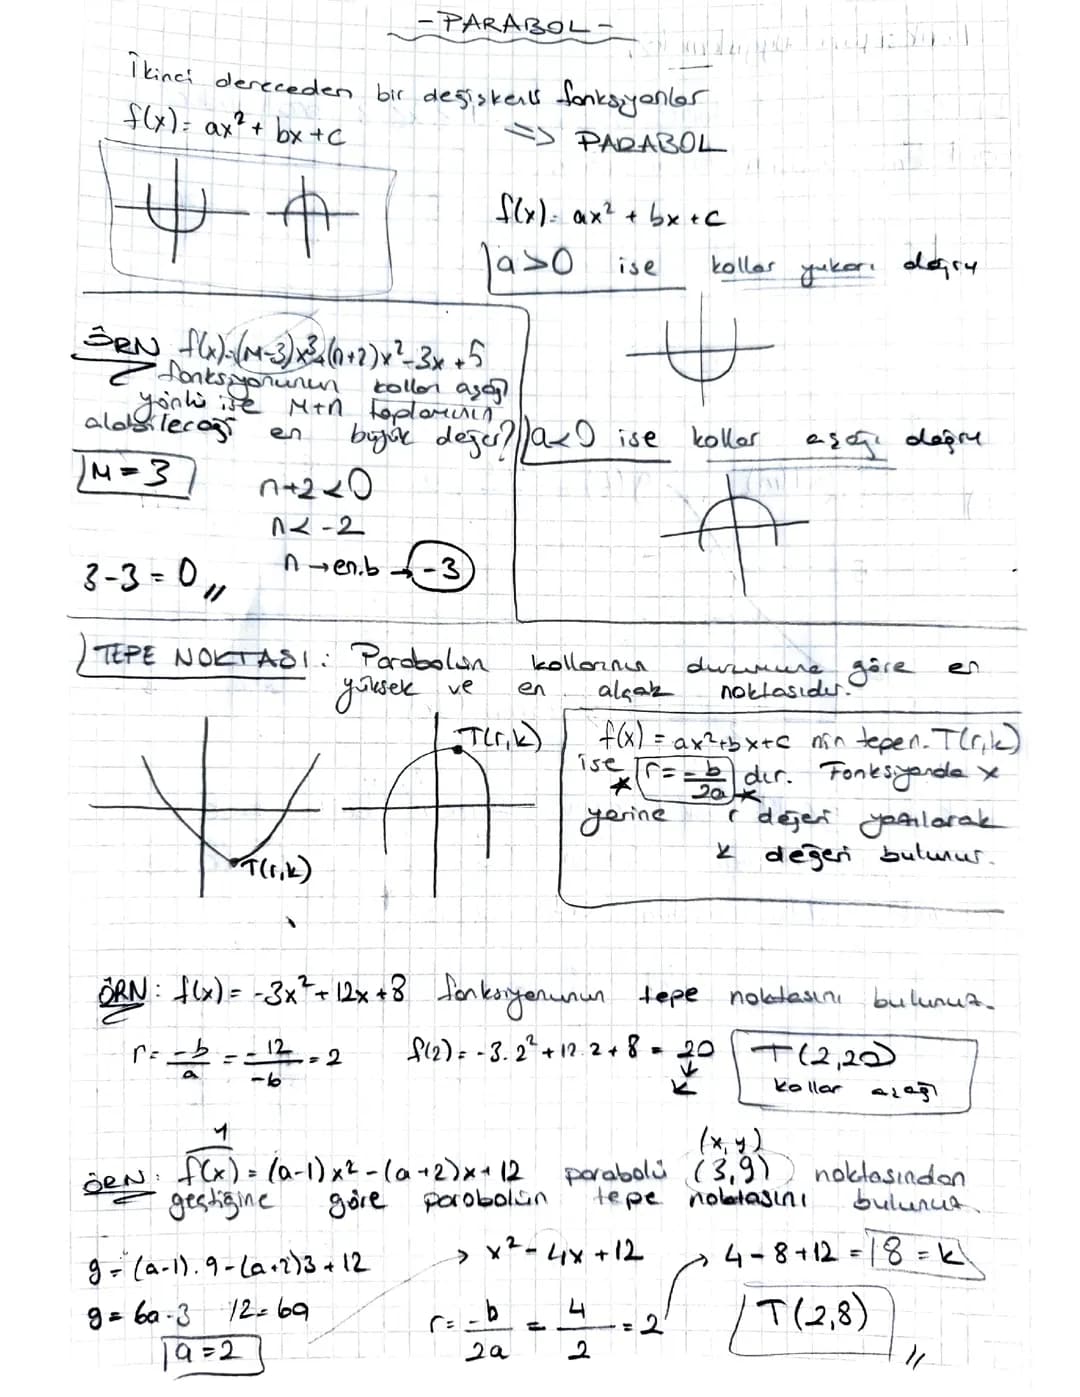 - PARABOL -
İkinci dereceden bir değişkenli fonksiyonlar
f(x) = ax² + bx + c => PARABOL
f(x) = ax² + bx + c
a > 0 ise kollar yukarı doğru
ÖRN f(x) = (M-3)x³ + (n+2)x² - 3x + 5
fonksiyonunun kolları aşağı
yönlü ise M+n toplamının
alabileceği en büyük değer?
M = 3
n+2 < 0
n < -2
n → en.b → -3
3 - 3 = 0 //
a < 0 ise kollar aşağı doğru
TEPE NOKTASI : Parabolün kollarının durumuna göre en
yüksek ve en alçak noktasıdır.
T(r,k)
T(r,k)
f(x) = ax²+bx+c nin tepen. T(r,k)
ise r = -b/2a dır. Fonksiyonda x
yerine r değeri yazılarak
k değeri bulunur.
ÖRN : f(x) = -3x² + 12x + 8 fonksiyonunun tepe noktasını bulunuz.
r = -b/a = -12/-6 = 2 f(2) = -3.2² + 12.2 + 8 = 20
k
T(2,20)
kollar aşağı
y (x,y)
ÖRN : f(x) = (a-1)x² - (a+2)x + 12 parabolü (3,9) noktasından
geçtiğine göre parabolün tepe noktasını bulunuz.
9 = (a-1).9 - (a+2)3 + 12 → x² - 4x + 12 → 4 - 8 + 12 = 8 = k
9 = 6a - 3 12 = 6a r = -b/2a = 4/2 = 2 T(2,8) //
a = 2